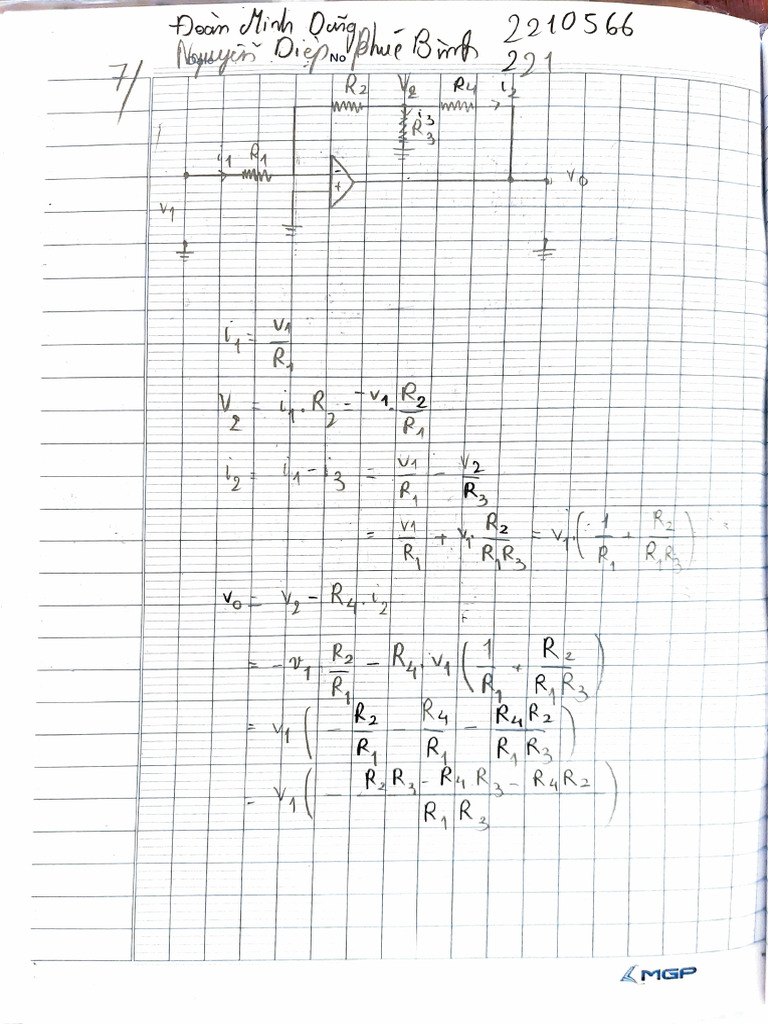 Đoàn Minh Dũng 2210566
Nguyễn Diệp Phúc Bình 221
7/
R2 V2 R4 i2
i3
R3
i1 R1
-
+
v0
v1
i1 = v1/R1
V2 = i1 . R2 = -v1 . R2/R1
i2 = i1 - i3 = v1/R1 - v2/R3
= v1/R1 + v1 . R2/R1R3 = v1 . (1/R1 + R2/R1R3)
v0 = v2 - R4 . i2
= -v1 R2/R1 - R4 . v1 (1/R1 + R2/R1R3)
= v1 (- R2/R1 - R4/R1 - R4R2/R1R3)
= v1 (- R2R3 - R4R3 - R4R2/R1R3)
MGP